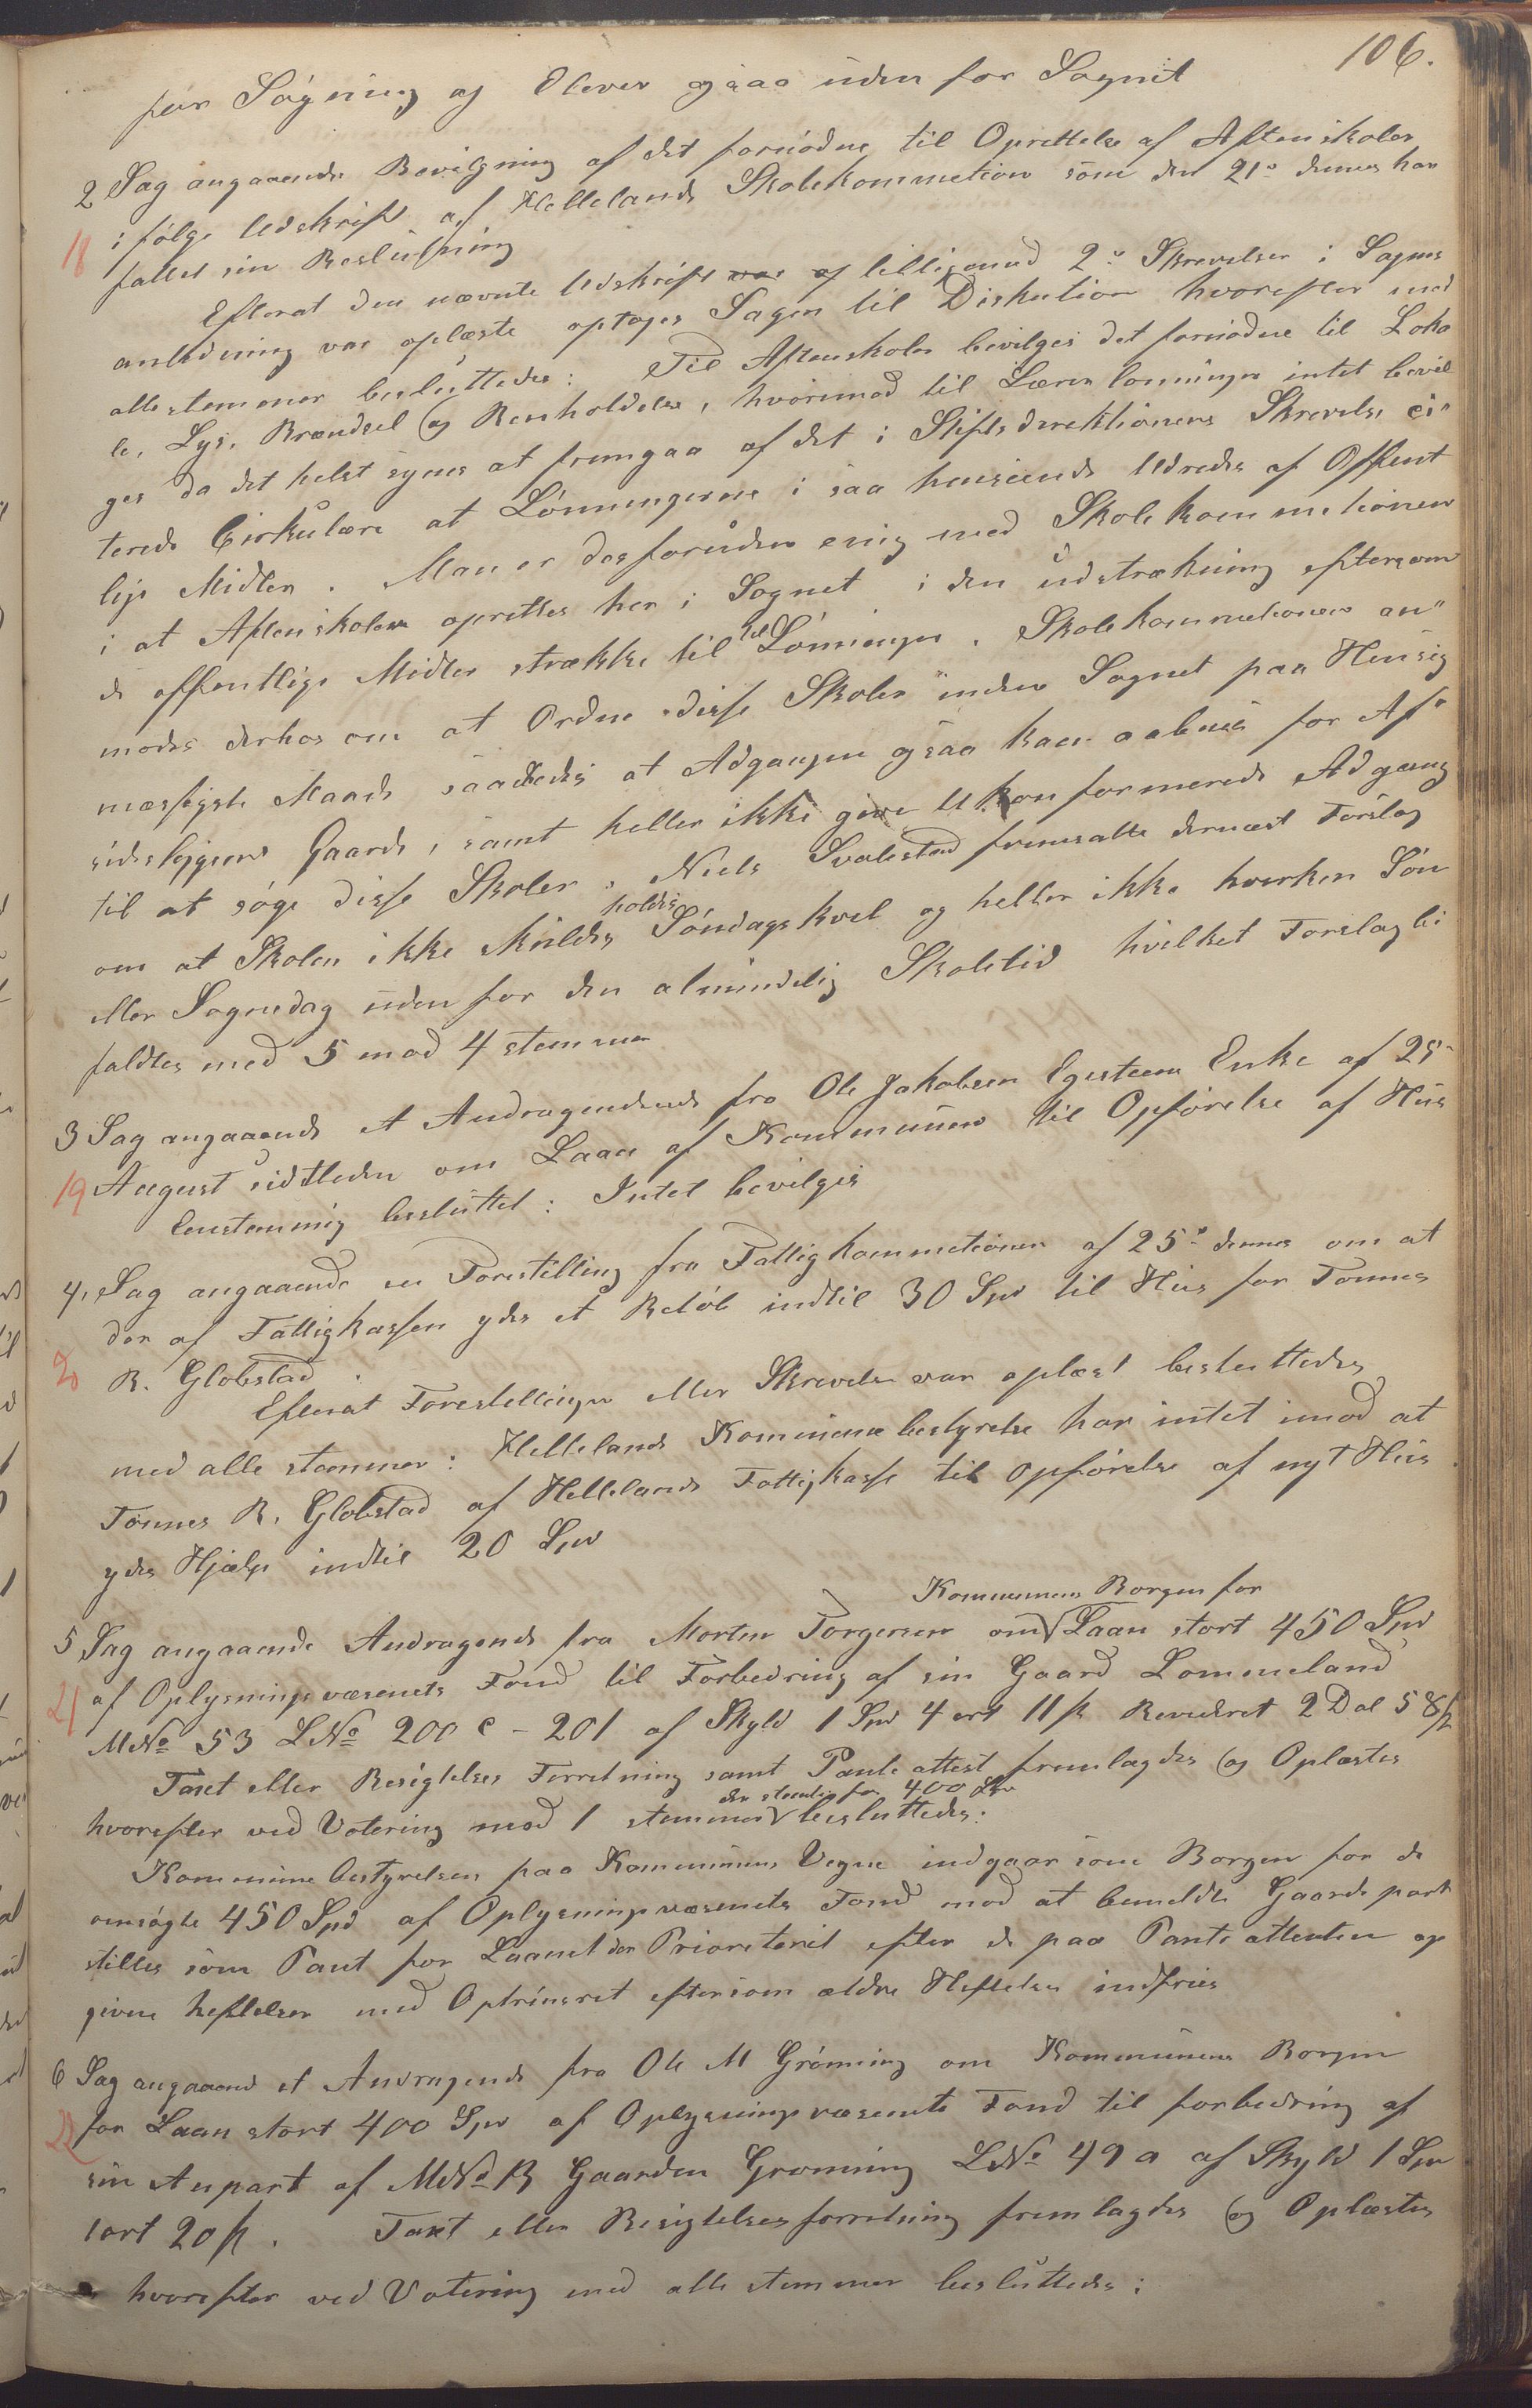 106.
for Søgning af Elever ogsaa uden for Sognet
2 Sag angaaende Bevilgning af det fornødne til Oprettelse af Aftenskoler
18 i følge Udskrift af Hellelands Skolekommetion som den 21de dennes har
fattet sin Beslutning
Efterat den nævnte Udskrift var af tilligemed 2de Skrevelser i Sagens
anledning var oplæste optoges Sagen til Diskution hvorefter med
alle stemmer besluttedes: Til Aftenskoler bevilges det fornødne til Loka
le, Lys, Brændsel og Renholdelse, hvorimod til Lærerlønninger intet bevil
ges da det helst synes at fremgaa af det i Stiftsdirektionens Skrevelse ci"
terede Cirkulære at Lønningerne i saa henseende Udredes af Offent
lige Midler. Man er desforuden enig med Skolekommetionen
i at Aftenskoler oprettes her i Sognet i den udstrækning eftersom
de offentlige Midler strække til til Lønninger. Skolekommetionen an"
modes derhos om at Ordne disse Skoler inden Sognet paa Hensig
mæssigste Maade saaledes at Adgangen ogsaa kan aabnes for Af"
sidesliggene Gaarde, samt heller ikke give Ukonfirmerede Adgang
til at søge disse Skoler. Niels Svalestad fremsatte dernæst Forslag
om at Skolen ikke skuldes holdes Søndagskvel og heller ikke hverken Søn
eller Søgnedag uden for den almindelig Skoletid hvilket Forslag bi
faldtes med 5 mod 4 stemmer
3 Sag angaaende et Andragendende fra Ole Jakobsen Egesteen Enke af 25de
19 August sidstleden om Laan af Kommunen til Opførelse af Hus
Eenstemmig besluttet: Intet bevilges
4, Sag angaaende en Forestilling fra Fattigkommetionen af 25de dennes om at
der af Fattigkassen ydes et Beløb indtil 30 Spd til Hus for Tønnes
20 R. Globstad.
Efterat Forestellingen eller Skrevelse var oplæst besluttedes
med alle stemmer: Hellelands Kommunebestyrelse har intet imod at
Tønnes R. Globstad af Hellelands Fattigkasse til opførelse af nyt Hus
ydes Hjælp indtil 20 Spd
5 Sag angaaende Andragende fra Morten Torgersen om Kommunens Borgen for Laan stort 450 Spd
21 af Oplysningsvæsenets Fond til Forbedring af sin Gaard Lommeland
MNo 53 LNo 200 c - 201 af Skyld 1 Spd 4 ort 11 ß Revideret 2 Dal 5 8 ß
Taxt eller Besigtelses Forretning samt Panteattest fremlagdes og Oplæstes
hvorefter ved Votering mod 1 stemmer der stemte for 400 Spd besluttedes:
Kommunebestyrelsen paa Kommunens Vegne indgaar som Borgen for de
omsøgte 450 Spd af Oplysningsvæsenets Fond mod at bemeldte Gaardepart
stilles som Pant for Laanet der Prioreteret efter de paa Panteattesten op
givene heftelser med Optrinsret eftersom ældre Heftelser indfries
6 Sag angaaend et Andragende fra Ole M Grønning om Kommunens Borgen
22 for Laan stort 400 Spd af Oplysningsvæsenets Fond til forbedring af
sin Anpart af MNo 13 Gaarden Grønning LNo 49 a af Skyld 1 Spd
1 ort 20 ß. Taxt eller Besigtelsesforretning fremlagdes og Oplæstes
hvorefter ved Votering med alle stemmer besluttedes: